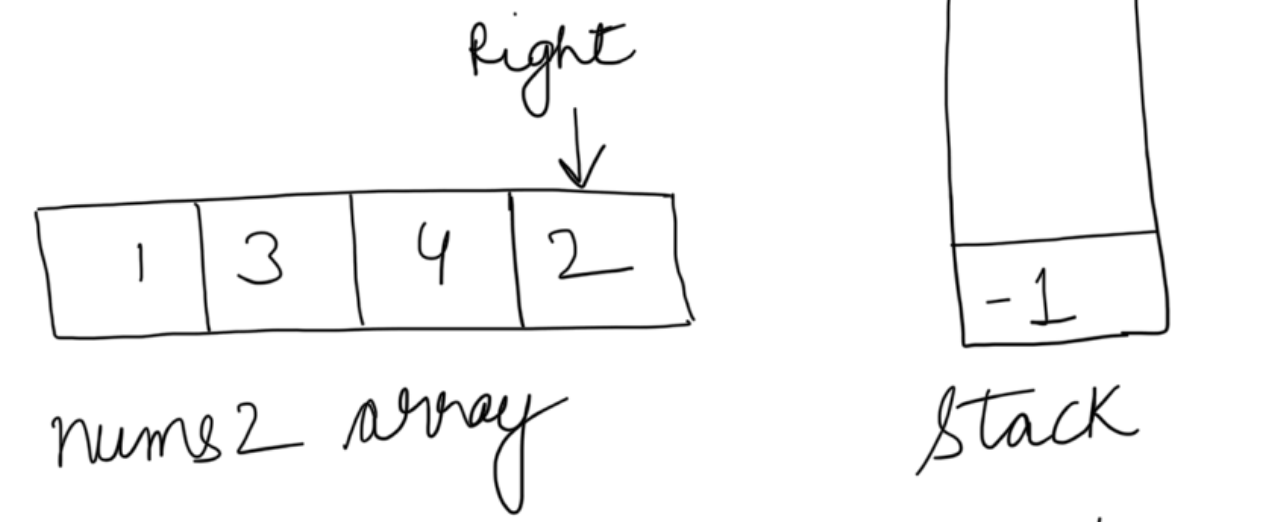 Right
1 3 4 2
-1
nums2 array
Stack